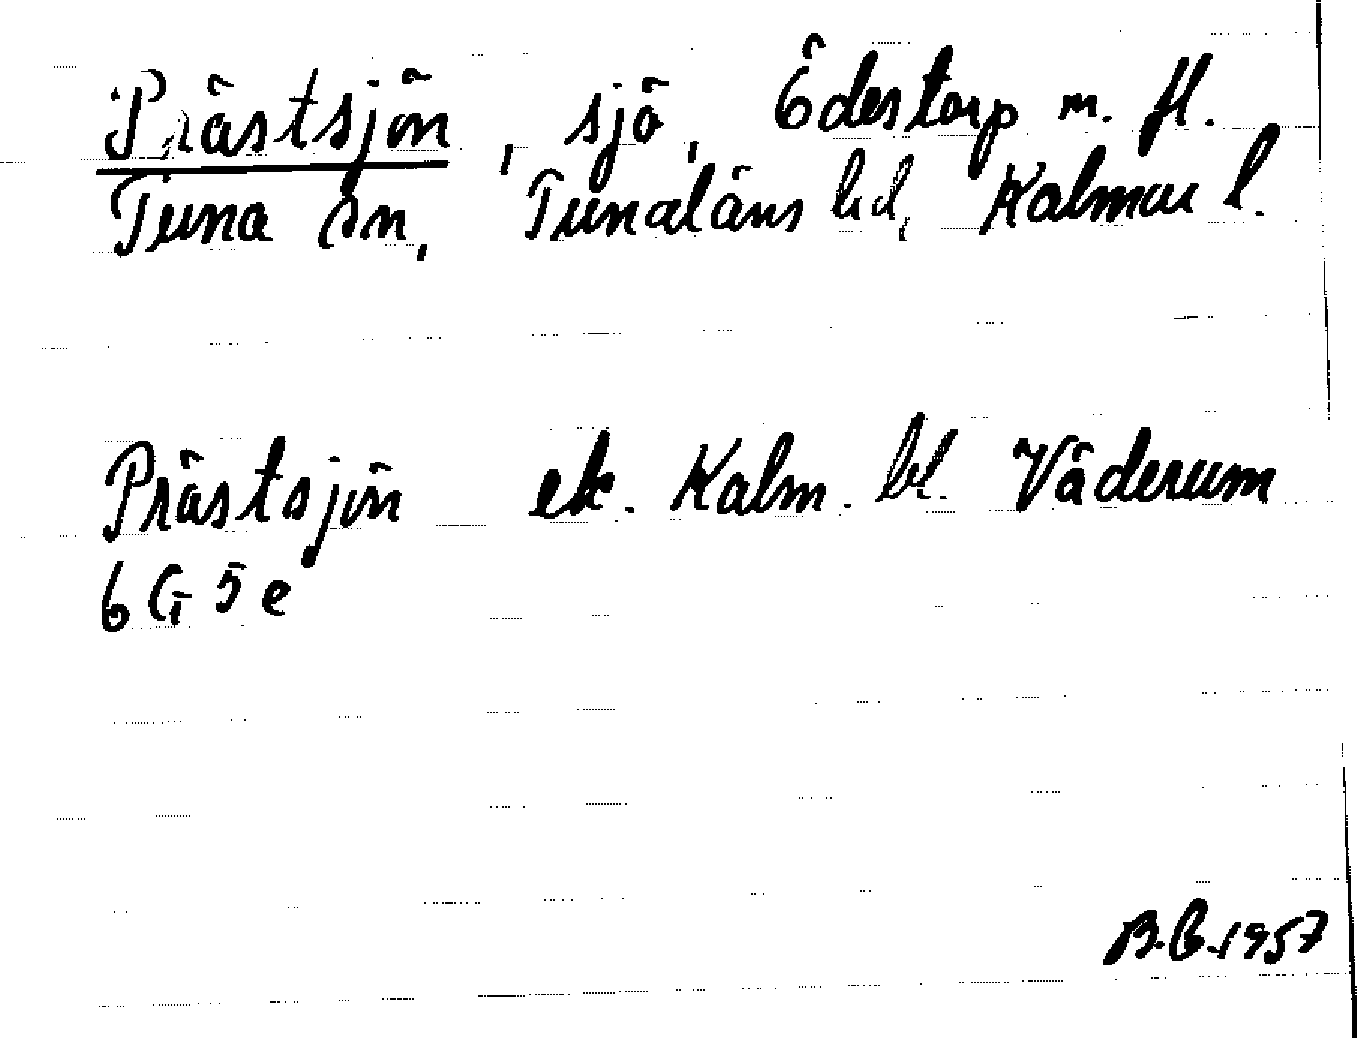 Prästsjön, sjö, Ödestorp m. fl.
Tuna sn, Tunaläns hd, Kalmar l.
Prästsjön ek. Kalm. bl. Väderum
6 G 5 e
B.G. 1957